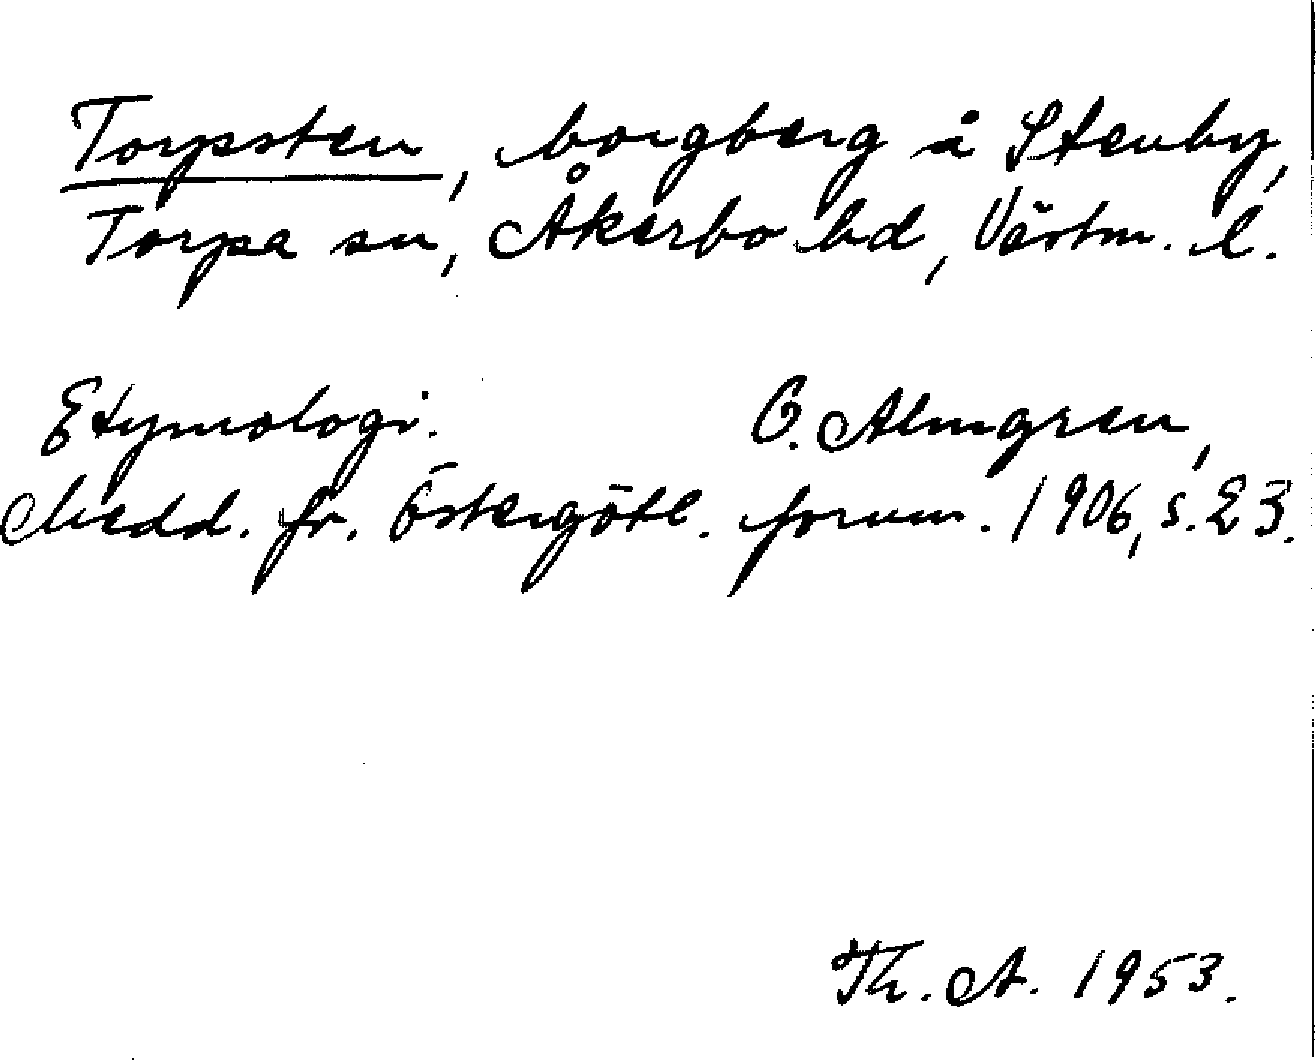 Torpsten, borgberg å Stenby,
Torpa sn, Åkerbo hd, Västm. l.
Etymologi. O. Almgren,
Medd. fr. Östergötl. fornm. 1906, s. 23.
Th. A. 1953.